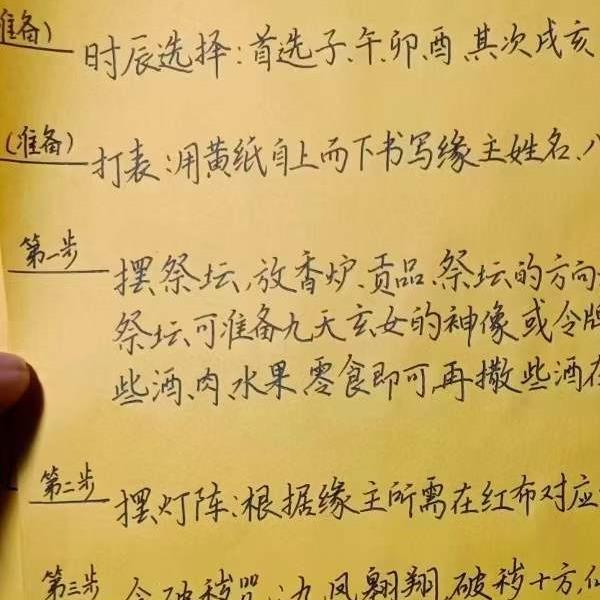 准备) 时辰选择:首选子、午、卯、酉,其次戌亥
(准备) 打表:用黄纸自上而下书写缘主姓名、八
第一步 摆祭坛,放香炉、贡品、祭坛的方向
祭坛可准备九天玄女的神像或令牌
些酒、肉、水果、零食即可,再撒些酒在
第二步 摆灯阵:根据缘主所需在红布对应
第三步 念破秽咒:九凤翱翔,破秽十方,仙